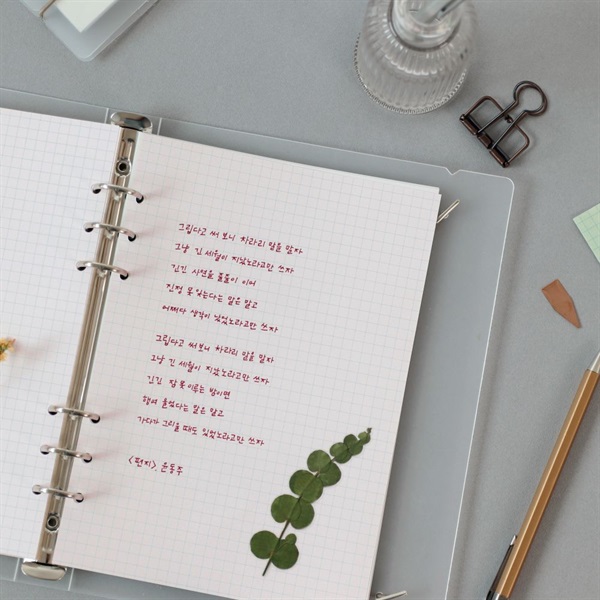 그립다고 써 보니 차라리 말을 말자
그냥 긴 세월이 지났노라고만 쓰자
긴긴 사연을 줄줄이 이어
진정 못 잊는다는 말은 말고
어쩌다 생각이 났었노라고만 쓰자
그립다고 써 보니 차라리 말을 말자
그냥 긴 세월이 지났노라고만 쓰자
긴긴 잠 못 이루는 밤이면
행여 울었다는 말은 말고
가다가 그리울 때도 있었노라고만 쓰자
<편지>, 윤동주